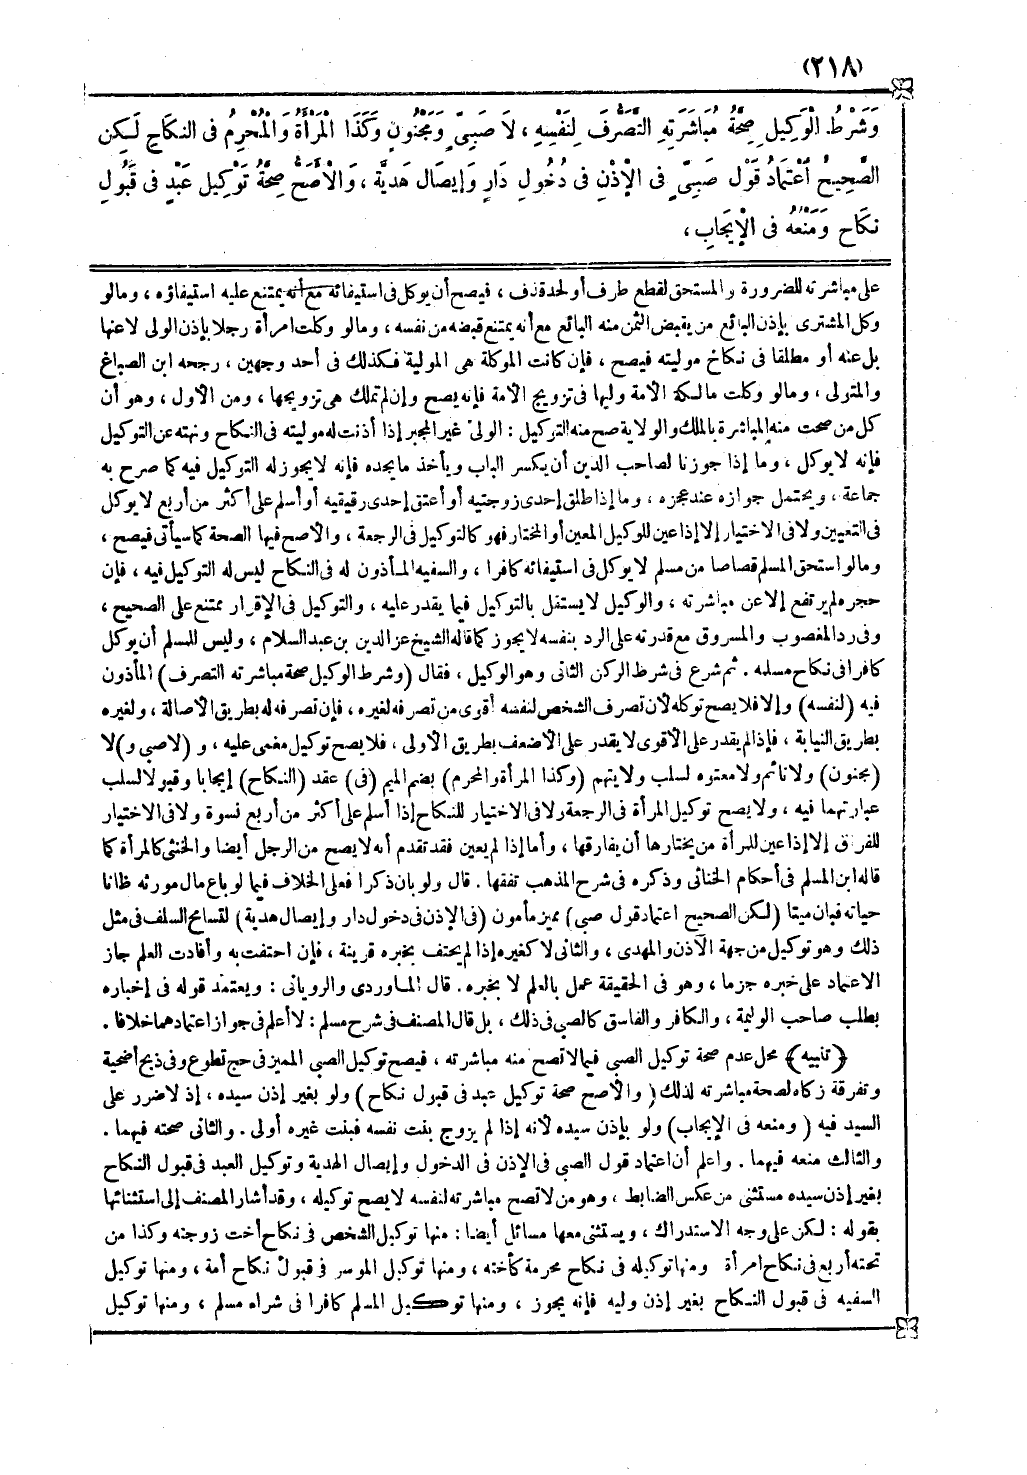 (٢١٨)
وَشَرْطُ الْوَكِيلِ صِحَّةُ مُبَاشَرَتِهِ التَّصَرُّفَ لِنَفْسِهِ ، لَا صَبِيٍّ وَمَجْنُونٍ وَكَذَا الْمَرْأَةُ وَالْمُحْرِمُ فى النكَاحِ لَكِن
الصَّحِيحُ اعْتِمَادُ قَوْلِ صَبِيٍّ فى الإِذْنِ فى دُخُولِ دَارٍ وَإِيصَالِ هَدِيَّةٍ ، وَالْأَصَحُّ صِحَّةُ تَوْكِيلِ عَبْدٍ فى قَبُولِ
نكَاحٍ وَمَنْعُهُ فى الْإِيجَابِ ،
على مباشرته للضرورة والمستحق لقطع طرف أو لحد قذف ، فيصح أن يوكل فى استيفائه مع أنه يمتنع عليه استيفاؤه ، ومالو
وكل المشترى بإذن البائع من يقبض الثمن منه البائع مع أنه يمتنع قبضه من نفسه ، ومالو وكلت امرأة رجلا بإذن الولى لاعنها
بل عنه أو مطلقا فى نكاح موليته فيصح ، فإن كانت الموكلة هى المولية فكذلك فى أحد وجهين ، رجحه ابن الصباغ
والمتولى ، ومالو وكلت مالكة الأمة وليها فى تزويج الأمة فإنه يصح وإن لم تملك هى تزويجها ، ومن الأول ، وهو أن
كل من صحت منه المباشرة بالملك والولاية صح منه التوكيل : الولى غير المجبر إذا أذنت له موليته فى النكاح ونهته عن التوكيل
فإنه لا يوكل ، وما إذا جوزنا لصاحب الدين أن يكسر الباب ويأخذ ما يجده فإنه لا يجوز له التوكيل فيه كما صرح به
جماعة ، ويحتمل جوازه عند عجزه ، وما إذا طلق إحدى زوجتيه أو أعتق إحدى رقيقيه أو أسلم على أكثر من أربع لا يوكل
فى التعيين ولا فى الاختيار إلا إذا عين للوكيل المعين أو المختار فهو كالتوكيل فى الرجعة ، والأصح فيها الصحة كما سيأتى فيصح ،
ومالو استحق المسلم قصاصا من مسلم لا يوكل فى استيفائه كافرا ، والسفيه المأذون له فى النكاح ليس له التوكيل فيه ، فإن
حجره لم يرتفع إلا عن مباشرته ، والوكيل لا يستقل بالتوكيل فيما يقدر عليه ، والتوكيل فى الإقرار ممتنع على الصحيح ،
وفى رد المغصوب والمسروق مع قدرته على الرد بنفسه لا يجوز كما قاله الشيخ عز الدين بن عبد السلام ، وليس للمسلم أن يوكل
كافرا فى نكاح مسلمه . ثم شرع فى شرط الركن الثانى وهو الوكيل ، فقال (وشرط الوكيل صحة مباشرته التصرف) المأذون
فيه (لنفسه) وإلا فلا يصح توكله لأن تصرف الشخص لنفسه أقوى من تصرفه لغيره ، فإن تصرفه له بطريق الأصالة ، ولغيره
بطريق النيابة ، فإذا لم يقدر على الأقوى لا يقدر على الأضعف بطريق الأولى ، فلا يصح توكيل مغمى عليه ، و (لا صبى و) لا
(مجنون) ولا نائم ولا معتوه لسلب ولايتهم (وكذا المرأة والمحرم) بضم الميم (فى) عقد (النكاح) إيجابا وقبولا لسلب
عبارتهما فيه ، ولا يصح توكيل المرأة فى الرجعة ولا فى الاختيار للنكاح إذا أسلم على أكثر من أربع نسوة ولا فى الاختيار
للفراق إلا إذا عين للمرأة من يختارها أن يفارقها ، وأما إذا لم يعين فقد تقدم أنه لا يصح من الرجل أيضا والخنثى كالمرأة كما
قاله ابن المسلم فى أحكام الخناثى وذكره فى شرح المذهب تفقها . قال ولو بان ذكرا فعلى الخلاف فيما لو باع مال مورثه ظانا
حياته فبان ميتا (لكن الصحيح اعتماد قول صبى) مميز مأمون (فى الإذن فى دخول دار وإيصال هدية) لتسامح السلف فى مثل
ذلك وهو توكيل من جهة الآذن والمهدى ، والثانى لا كغيره إذا لم يحتف بخبره قرينة ، فإن احتفت به وأفادت العلم جاز
الاعتماد على خبره جزما ، وهو فى الحقيقة عمل بالعلم لا بخبره . قال الماوردى والرويانى : ويعتمد قوله فى إخباره
بطلب صاحب الوليمة ، والكافر والفاسق كالصبى فى ذلك ، بل قال المصنف فى شرح مسلم : لا أعلم فى جواز اعتمادهما خلافا .
﴿ تنبيه ﴾ محل عدم صحة توكيل الصبى فيما لا تصح منه مباشرته ، فيصح توكيل الصبى المميز فى حج تطوع وفى ذبح أضحية
وتفرقة زكاه لصحة مباشرته لذلك ( والأصح صحة توكيل عبد فى قبول نكاح ) ولو بغير إذن سيده ، إذ لا ضرر على
السيد فيه ( ومنعه فى الإيجاب ) ولو بإذن سيده لأنه إذا لم يزوج بنت نفسه فبنت غيره أولى . والثانى صحته فيهما .
والثالث منعه فيهما . واعلم أن اعتماد قول الصبى فى الإذن فى الدخول وإيصال الهدية وتوكيل العبد فى قبول النكاح
بغير إذن سيده مستثنى من عكس الضابط ، وهو من لا تصح مباشرته لنفسه لا يصح توكيله ، وقد أشار المصنف إلى استثنائها
بقوله : لكن على وجه الاستدراك ، ويستثنى معها مسائل أيضا : منها توكيل الشخص فى نكاح أخت زوجته وكذا من
تحته أربع فى نكاح امرأة ومنها توكيله فى نكاح محرمة كأخته ، ومنها توكيل الموسر فى قبول نكاح أمة ، ومنها توكيل
السفيه فى قبول النكاح بغير إذن وليه فإنه يجوز ، ومنها توكيل المسلم كافرا فى شراء مسلم ، ومنها توكيل